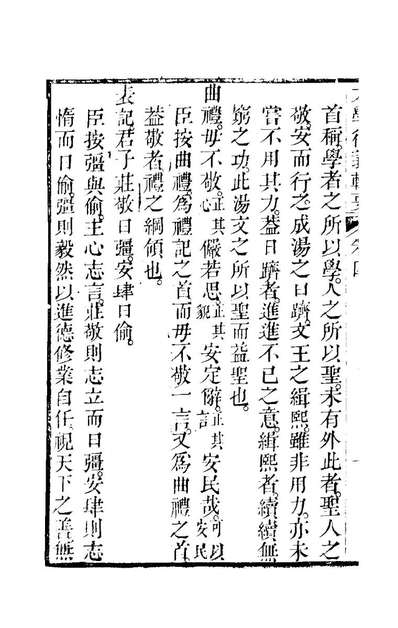 首稱學者之所以學。人之所以聖。未有外此者。聖人之
敬。安而行之。成湯之日躋。文王之緝熙。雖非用力。亦未
嘗不用其力。益日躋者。進進不已之意。緝熙者。續續無
窮之功。此湯文之所以聖而益聖也。
曲禮。毋不敬。正其心儼若思。正其貌安定辭。正其言安民哉。可以安民
臣按曲禮。為禮記之首。而毋不敬一言。又為曲禮之首
益敬者。禮之綱領也。
表記。君子莊敬日彊。安肆日偷。
臣按彊與偷。主心志言。莊敬則志立而日彊。安肆則志
惰而日偷。彊則毅然以進德修業自任。視天下之善無